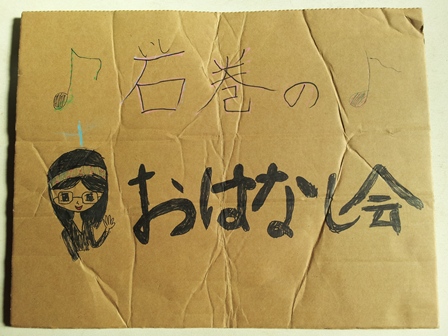 ♪岩巻の♪
おはなし会